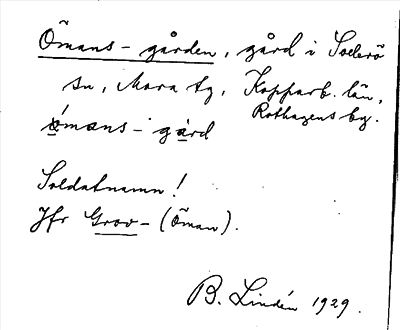 Ömans-gården, gård i Sollerö
sn, Mora tg, Kopparb. län,
Rothagens by.
ómans-gård
Soldatnamn!
Jfr Grov- (Öman).
B. Lindén 1929.